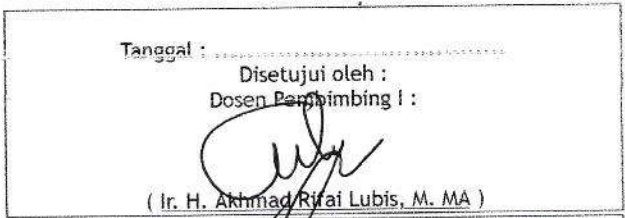 Tanggal : ........................................................
Disetujui oleh :
Dosen Pembimbing I :
( Ir. H. Akhmad Rifai Lubis, M. MA )